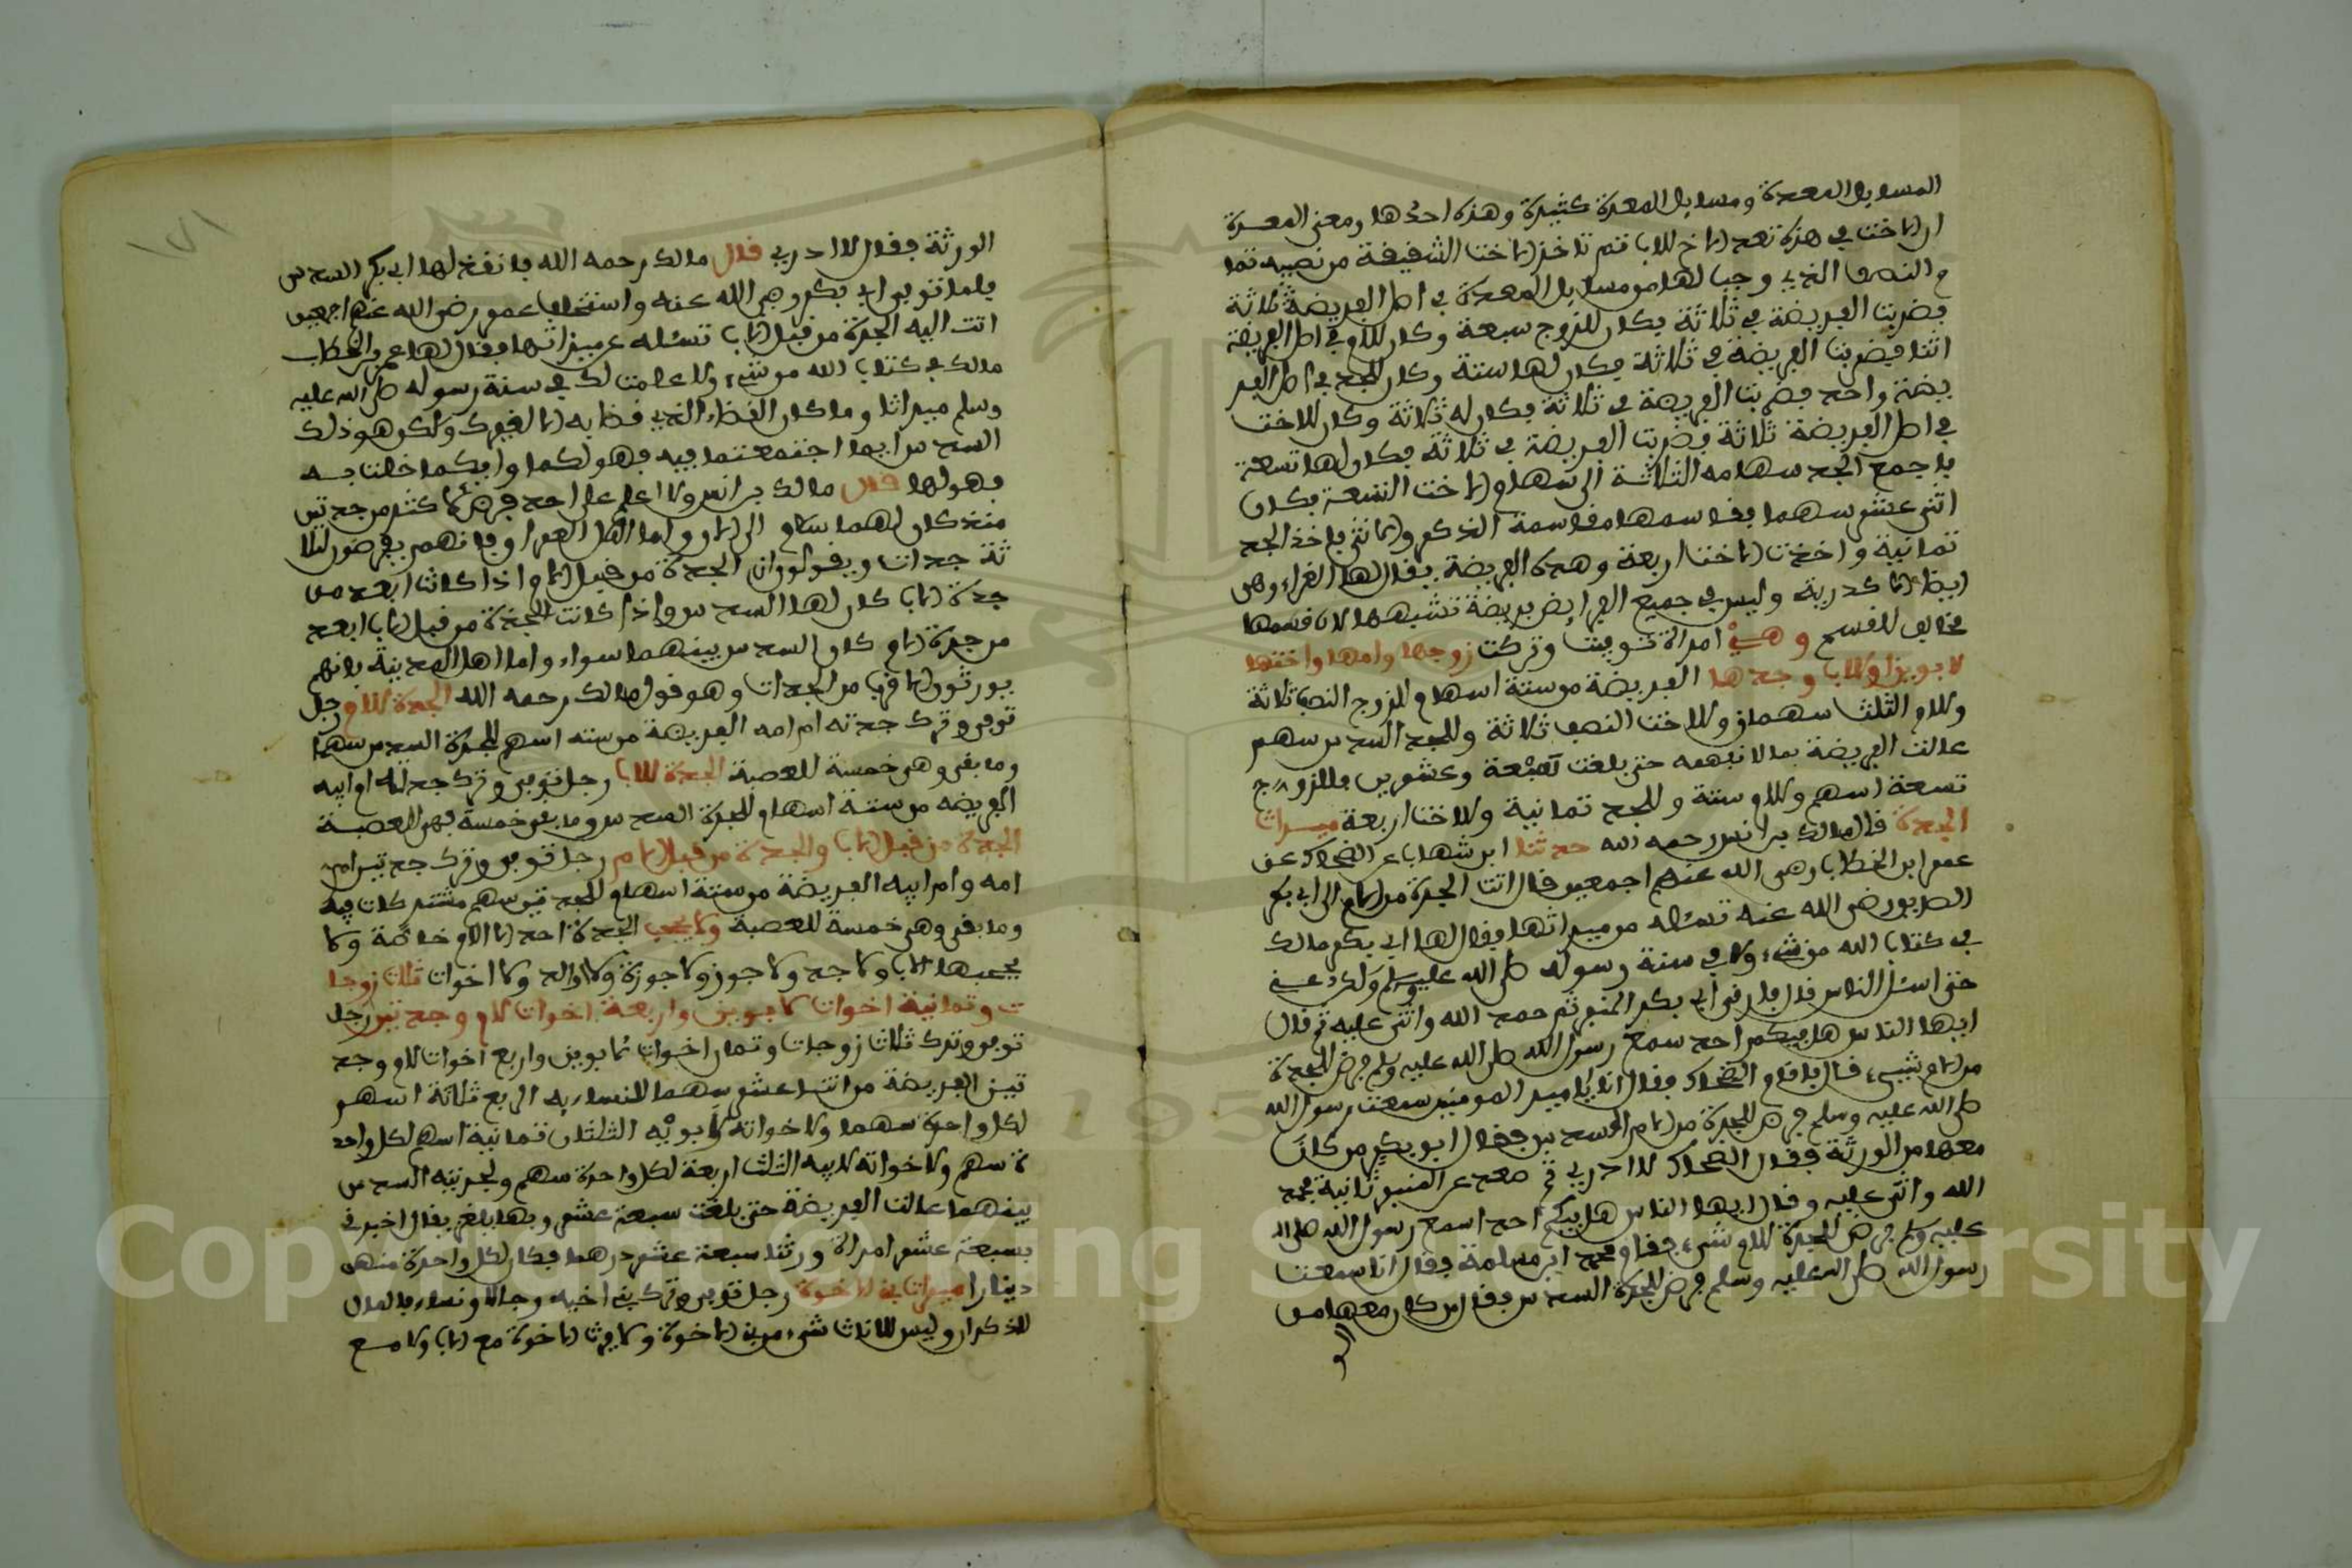 المسايل المعدة ومسايل المعدة كثيرة وهذه احدها ومعنى المعدة
ان الاخت في هذه تعد الاخ للاب ثم تاخذ الاخت الشقيقة من نصيبه تما
م النصف الذي وجب لها من مسايل المعدة في اصل الفريضة ثلاثة
فضربت الفريضة في ثلاثة فكان للزوج سبعة وكان للام في اصل الفريضة
اثنا فضربت الفريضة في ثلاثة فكان لها ستة وكان للجد في اصل الفر
يضة واحد فضربت الفريضة في ثلاثة فكان له ثلاثة وكان للاخت
في اصل الفريضة ثلاثة فضربت الفريضة في ثلاثة فكان لها تسعة
فاجمع الجد سهامه الثلاثة الى سهام الاخت التسعة فكان
اثنى عشر سهما فقاسمها مقاسمة الذكر والانثى فاخذ الجد
ثمانية واخذت الاخت اربعة وهذه الفريضة يقال لها الغراء وهي
ايضا الاكدرية وليس في جميع الفرايض فريضة تشبهها لان قسمها
مخالف للقسم وهي امراة توفيت وتركت زوجها وامها واختها
لابوين او لاب وجدها الفريضة من ستة اسهام للزوج النصف ثلاثة
وللام الثلث سهمان وللاخت النصف ثلاثة وللجد السدس سهم
عالت الفريضة بما لا تفهمه حتى بلغت تسعة وعشرين فللزوج
تسعة اسهم وللام ستة وللجد ثمانية وللاخت اربعة ميراث
الجدة قال مالك بن انس رحمه الله حدثنا ابن شهاب عن الضحاك عن
عمر ابن الخطاب رضي الله عنهم اجمعين قال اتت الجدة من الام الى ابي بكر
الصديق رضي الله عنه تسئله من ميراثها فقال لها ابي بكر مالك
في كتاب الله من شيء ولا في سنة رسوله صلى الله عليه وسلم ولكن دعيني
حتى اسئل الناس قال فارقى ابي بكر المنبر ثم حمد الله واثنى عليه ثم قال
ايها الناس هل فيكم احد سمع رسول الله صلى الله عليه وسلم فرض للجدة
من الام شيىء قال فقام الضحاك فقال انا يا امير المومنين سمعت رسول الله
صلى الله عليه وسلم فرض للجدة من الام السدس فقال ابو بكر من كان
معها من الورثة فقال الضحاك لا ادري ثم صعد على المنبر ثانية فحمد
الله واثنى عليه وقال ايها الناس هل فيكم احد اسمع رسول الله صلى الله
عليه وسلم فرض للجدة للام شيء فقام محمد ابن مسلمة فقال انا سمعت
رسول الله صلى الله عليه وسلم فرض للجدة السدس فقال من كان معها من
الو
١٧١
الورثة فقال لا ادري قال مالك رحمه الله فانفذ لها ابي بكر السدس
فلما توفى ابي بكر رضي الله عنه واستخلف عمر رضي الله عنهم اجمعين
اتت اليه الجدة من قبل الاب تسئله عن ميراثها فقال لها عمر بن الخطاب
مالك في كتاب الله من شيء ولا علمت لك في سنة رسوله صلى الله عليه
وسلم ميراثا وما كان القضاء الذي قضا به الا لغيرك ولكن هو ذلك
السدس ايما اجتمعتما فيه فهو لكما وايكما خلت به
فهو لها قال مالك بن انس ولا اعلم على احد فرض لاكثر من جدتين
منذ كان لهما سلام الى الان واما اهل العراق فانهم يفرضون لثلا
ثة جدات ويقولون ان الجدة من قبل الام اذا كانت ابعد من
جدة الاب كان لها السدس واذا كانت الجدة من قبل الاب ابعد
من جدة الام كان السدس بينهما سواء واما اهل المدينة فانهم
يورثون الاقرب من الجدات وهو قول مالك رحمه الله الجدة للام رجل
توفى وترك جدته ام امه الفريضة من سته اسهم للجدة السدس سهما
وما بقى وهي خمسة للعصبة الجدة للاب رجل توفى وترك جدته ام ابيه
الفريضة من ستة اسهام للجدة السدس وما بقى خمسة فهي للعصبة
الجدة من قبل الاب والجدة من قبل الام رجل توفى وترك جدتين ام
امه وام ابيه الفريضة من ستة اسهام للجدتين سهم مشتركان فيه
وما بقى وهي خمسة للعصبة ولا يحجب الجدة احد الا الام خاصة ولا
يحجبها لاب ولا جد ولا جوز ولا جوزة ولا والد ولا اخوات ثلاث زوجا
ت وثمانية اخوات لابوين واربعة اخوات لام وجدتين رجل
توفى وترك ثلاث زوجات وثمان اخوات لابوين واربع اخوات للام وجد
تين الفريضة من اثنا عشر سهما للنساء به الربع ثلاثة اسهم
لكل واحدة سهما ولاخواته لابويه الثلثان ثمانية اسهم لكل واحد
ة سهم ولاخواته لابيه الثلث اربعة لكل واحدة سهم ولجدتيه السدس
بينهما عالت الفريضة حتى بلغت سبعة عشر وبها يلغز يقال اخبرني
بسبعة عشر امراة ورثنا سبعة عشر درهما فكان لكل واحدة منهن
دينارا ميراث بني الاخوة رجل توفى وترك بني اخيه رجالا ونساء فالمال
للذكران وليس للاناث شيء من بني الاخوة ولا يرث الاخوة مع الاب ولا مع